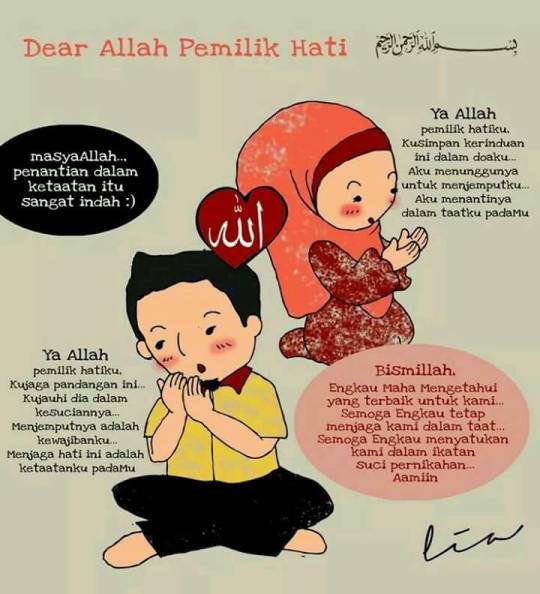 Dear Allah Pemilik Hati
بسم الله الرحمن الرحيم
masyaAllah..,
penantian dalam
ketaatan itu
sangat indah :)
Ya Allah
pemilik hatiku,
Kusimpan kerinduan
ini dalam doaku...
Aku menunggunya
untuk menjemputku...
Aku menantinya
dalam taatku padaMu
الله
Ya Allah
pemilik hatiku,
Kujaga pandangan ini...
Kujauhi dia dalam
kesuciannya...
Menjemputnya adalah
kewajibanku...
Menjaga hati ini adalah
ketaatanku padaMu
Bismillah,
Engkau Maha Mengetahui
yang terbaik untuk kami...
Semoga Engkau tetap
menjaga kami dalam taat...
Semoga Engkau menyatukan
kami dalam ikatan
suci pernikahan...
Aamiin
lia